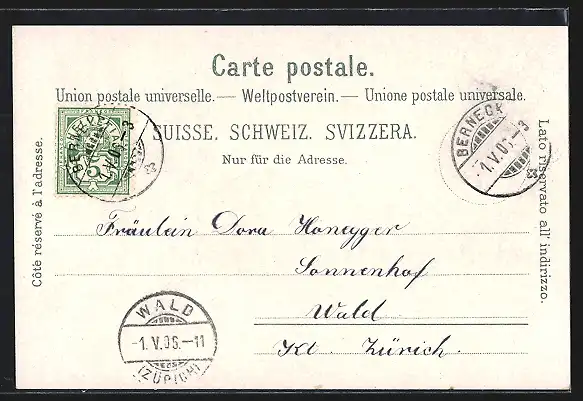 Carte postale.
Union postale universelle. — Weltpostverein. — Unione postale universale.
SUISSE. SCHWEIZ. SVIZZERA.
Nur für die Adresse.
Côté réservé à l'adresse.
Lato riservato all' indirizzo.
BERNECK
1.V.05.-3
5
BERNECK
-1.V.05.-3
Fräulein Dora Honegger
Sonnenhof
Wald
Kt. Zürich.
WALD
-1.V.05.-11
(ZÜRICH)